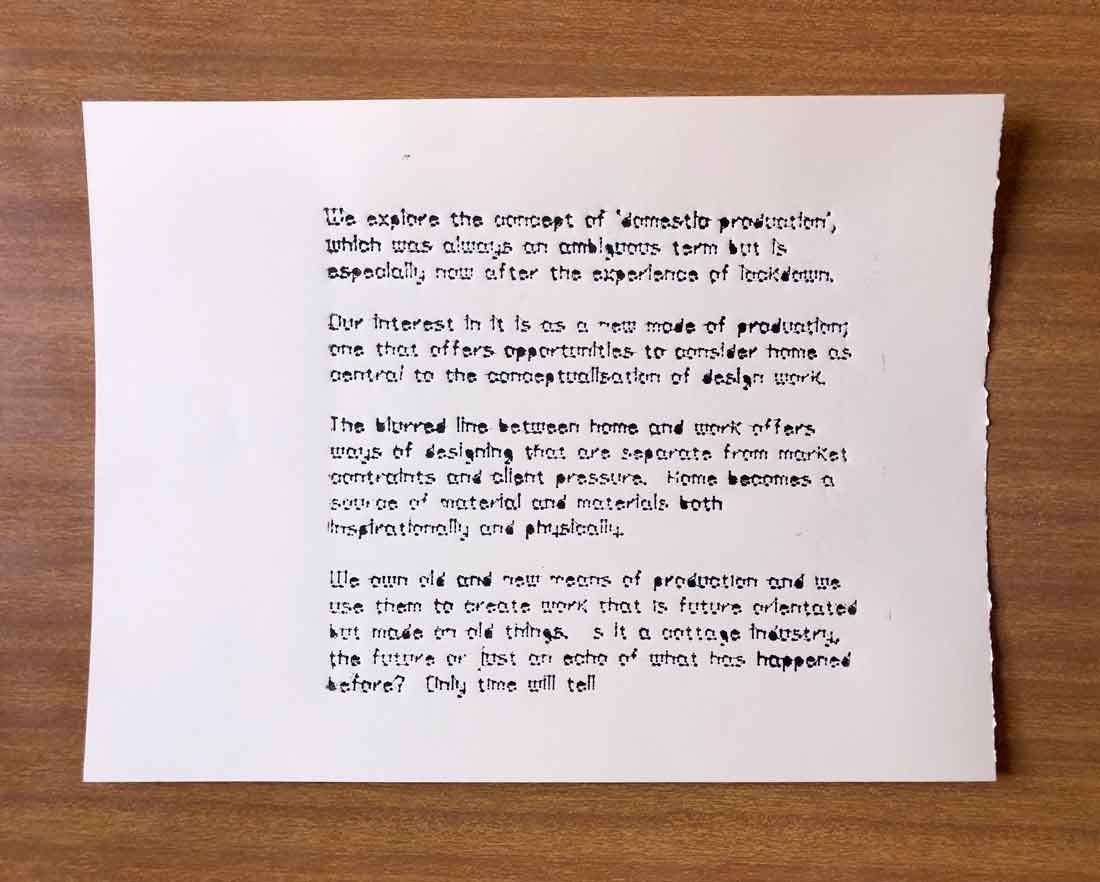 We explore the concept of 'domestic production',
which was always an ambiguous term but is
especially now after the experience of lockdown.
Our interest in it is as a new mode of production;
one that offers opportunities to consider home as
central to the conceptualisation of design work.
The blurred line between home and work offers
ways of designing that are separate from market
contraints and client pressure. Home becomes a
source of material and materials both
inspirationally and physically.
We own old and new means of production and we
use them to create work that is future orientated
but made on old things. s it a cottage industry,
the future or just an echo of what has happened
before? Only time will tell